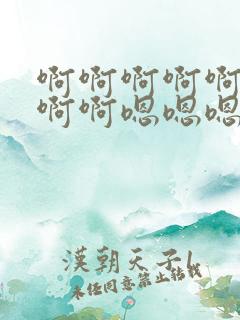 啊啊啊啊啊
啊啊嗯嗯嗯
漢朝天子l
未任同意禁止轉載